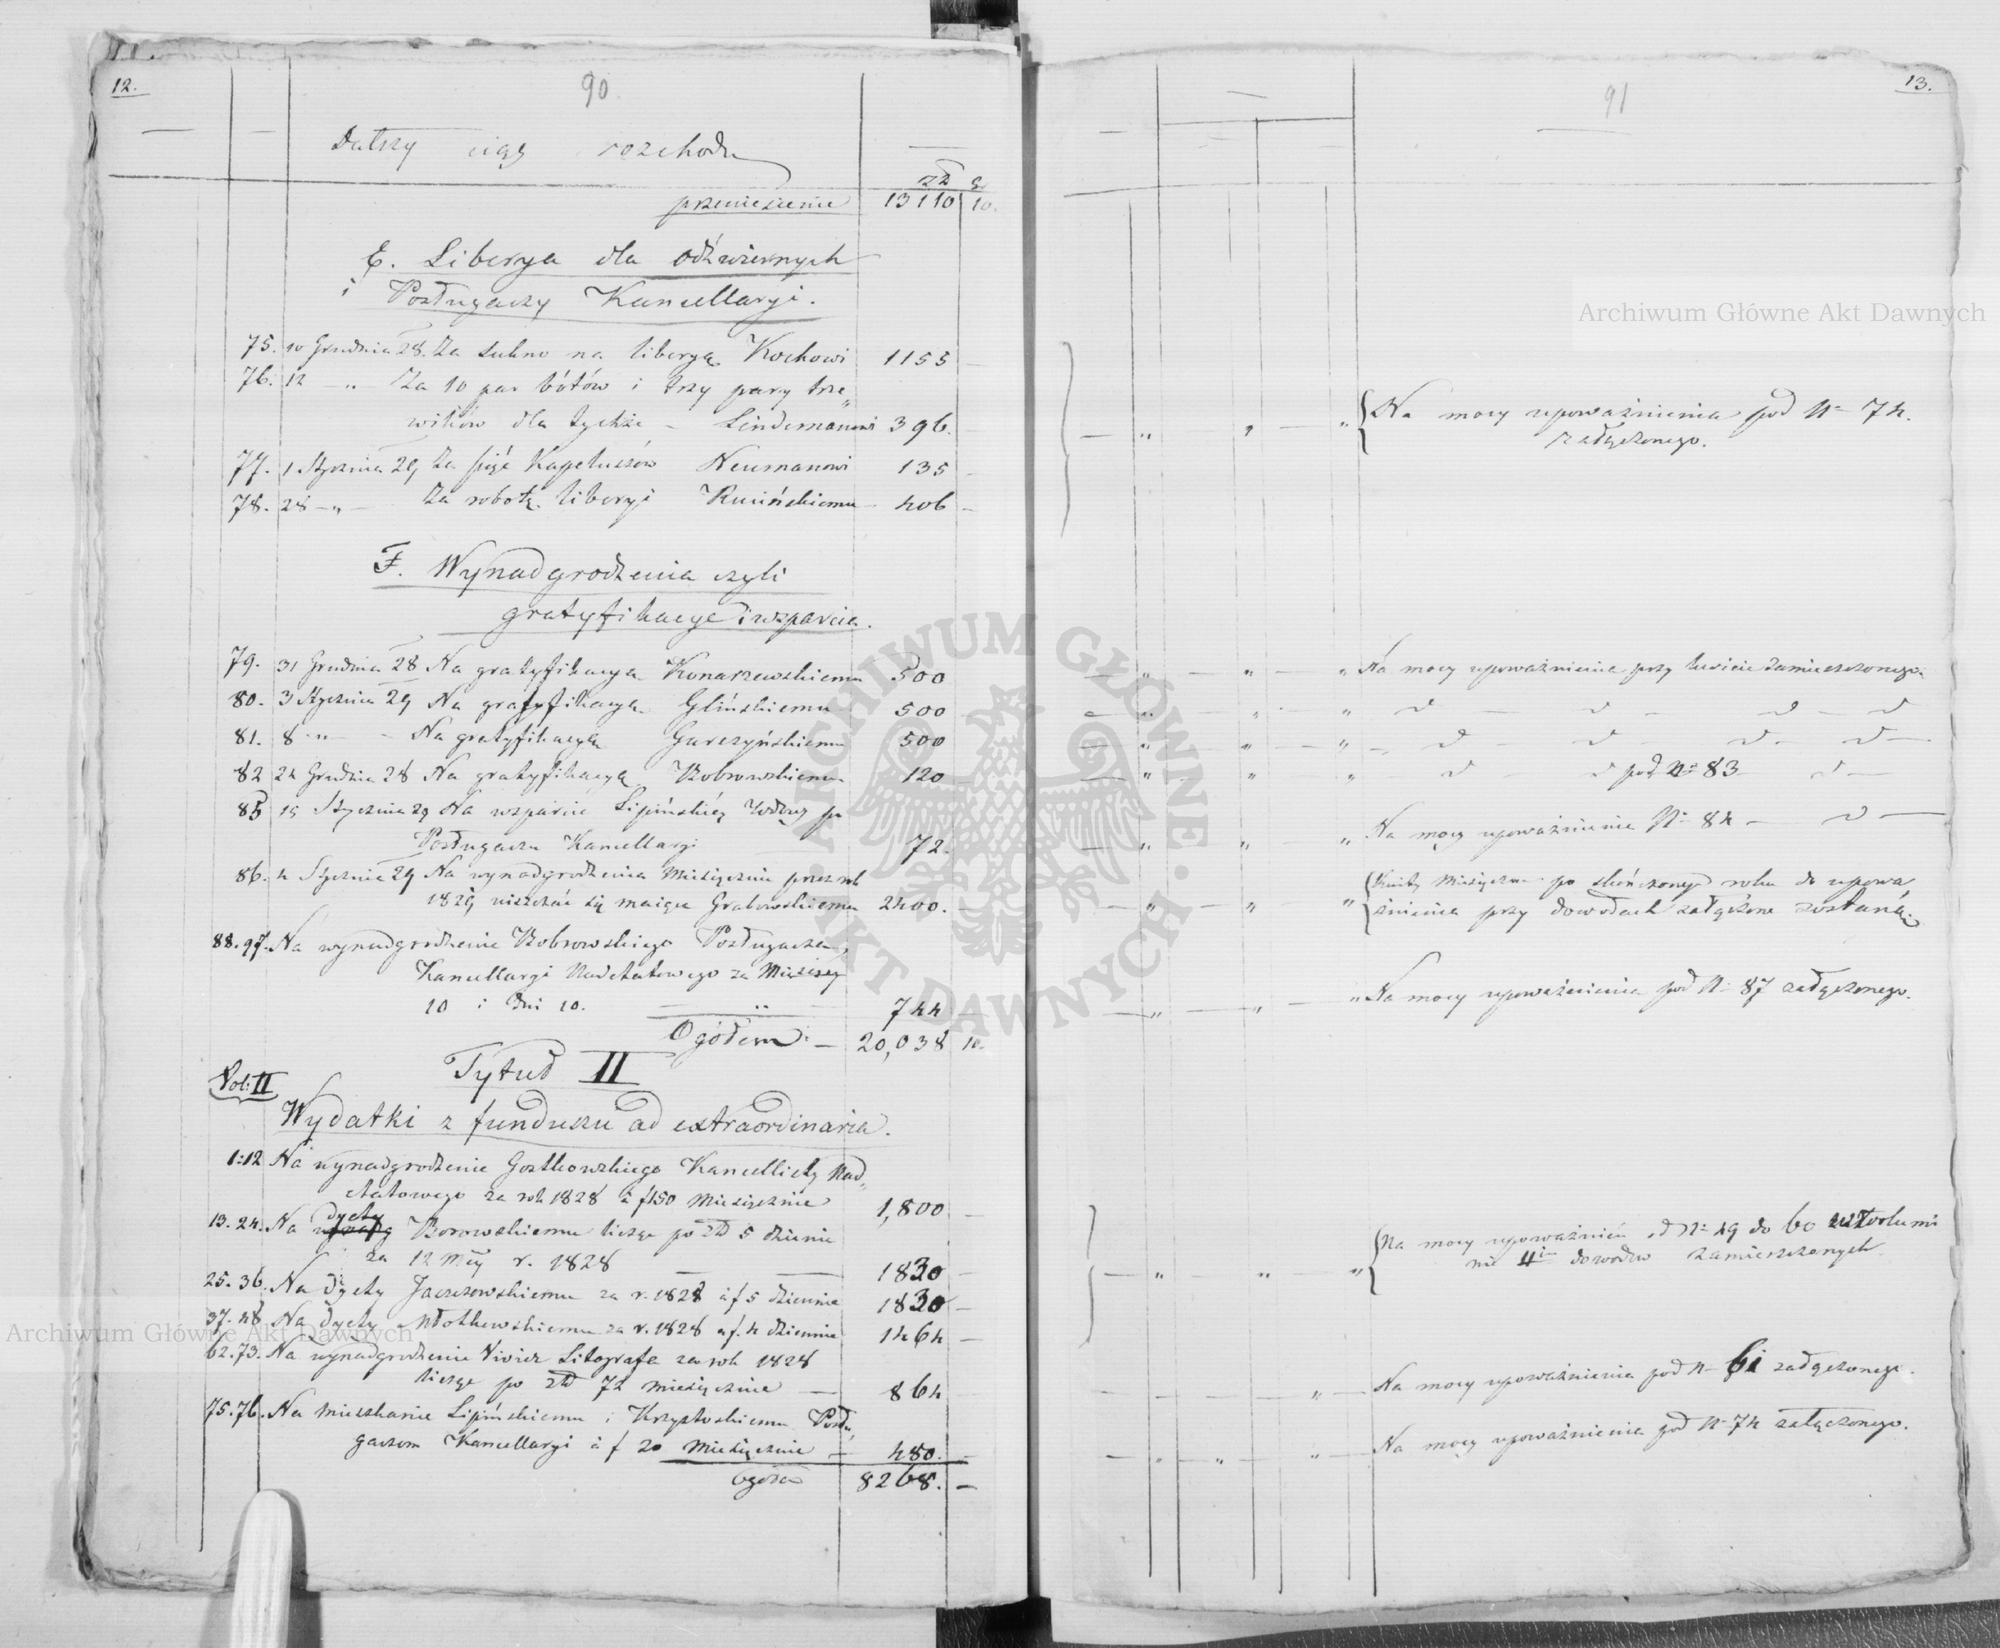 12.
90
Dalszy ciąg rozchodu
zł g.
przeniesienie 13110 10.
E. Liberya dla odźwiernych
i Posługaczy Kancellaryi.
75. 10 Grudnia 28. Za sukno na liberyą Kochowi 1155 —
76. 12 — „ — Za 10 par bótów i trzy pary trze„
wików dla tychże — Lindemanowi 396. —
77. 1 Stycznia 29, Za pięć Kapeluszów Neumanowi 135 —
78. 28 — „ — Za robotę liberyi Rucińskiemu — 406 —
F. Wynadgrodzenia czyli
gratyfikacye i wsparcia.
79. 31 Grudnia 28 Na gratyfikacyą Konarzewskiemu 500
80. 3 Stycznia 29 Na gratyfikacyą Glińskiemu 500
81. 8 — „ — Na gratyfikacyą Garczyńskiemu 500
82 24 Grudnia 28 Na gratyfikacyą Bobrowskiemu 120
85 15 Stycznia 29 Na wsparcie Lipińskiéy Wdowy po
Posługaczu Kancellaryi 72.
86. 4 Stycznia 29 Na wynadgrodzenia Miesięcznie przez rok
1829, uiszczać się maiące Grabowskiemu 2400. —
88. 97. Na wynadgrodzenie Bobrowskiego Posługacza
Kancellaryi Nadetatowego za Miesięcy
10 i dni 10. 744 —
Ogółem — 20,038 10.
Vol: II
Tytuł II
Wydatki z funduszu ad extraordinaria.
1:12 Na wynadgrodzenie Gostkowskiego Kancellisty Nad„
etatowego za rok 1828 à f 150 Miesięcznie 1,800 —
13. 24. Na dyety Borowskiemu licząc po zł 5 dziennie
za 12 Mcy r. 1828 — 1830 —
25. 36. Na dyety Jaczewskiemu za r. 1828 à f 5 dziennie 1830 —
37. 48 Na dyety Młotkowskiemu za r. 1828 a f. 4 dziennie 1464 —
62. 73. Na wynadgrodzenie Vivier Litografa za rok 1828
licząc po zł 72 miesięcznie — 864
75. 76. Na Mieszkanie Lipińskiemu i Krzyskoskiemu Posłu„
gaczom Kancellaryi à f 20 Miesięcznie — 480. —
Ogółem 8268. —
13.
91
Na mocy upoważnienia pod Nr 74.
załączonego.
Na mocy upoważnienia przy kwicie zamieszczonego.
pod Nr 83
Na mocy upoważnienia Nr 84 —
Kwity Miesięczne po skończonym roku do upowa„
żnienia przy dowodach załączone zostaną.
Na mocy upoważnienia pod Nr 87 załączonego.
Na mocy upoważnień od Nr 49 do 60 w Volumi
nie II dowodów zamieszczonych
Na mocy upoważnienia pod Nr 61 załączonego.
Na mocy upoważnienia pod Nr 74 załączonego.
Archiwum Główne Akt Dawnych
Archiwum Główne Akt Dawnych
ARCHIWUM GŁÓWNE · AKT DAWNYCH ·